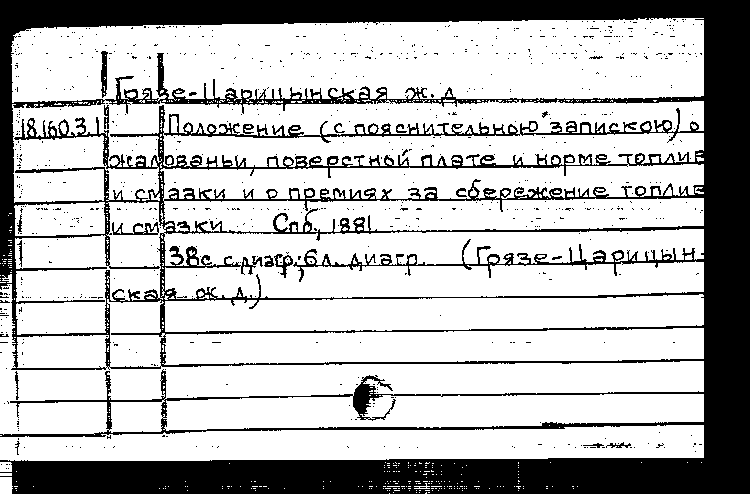 Грязе-Царицынская ж.д
18.160.3.1 Положение (с пояснительною запискою) о
жалованьи, поверстной плате и норме топлив
и смазки и о премиях за сбережение топлив
и смазки. Спб., 1881.
38с. с диагр.; 6л. диагр. (Грязе-Царицын-
ская ж.д.).